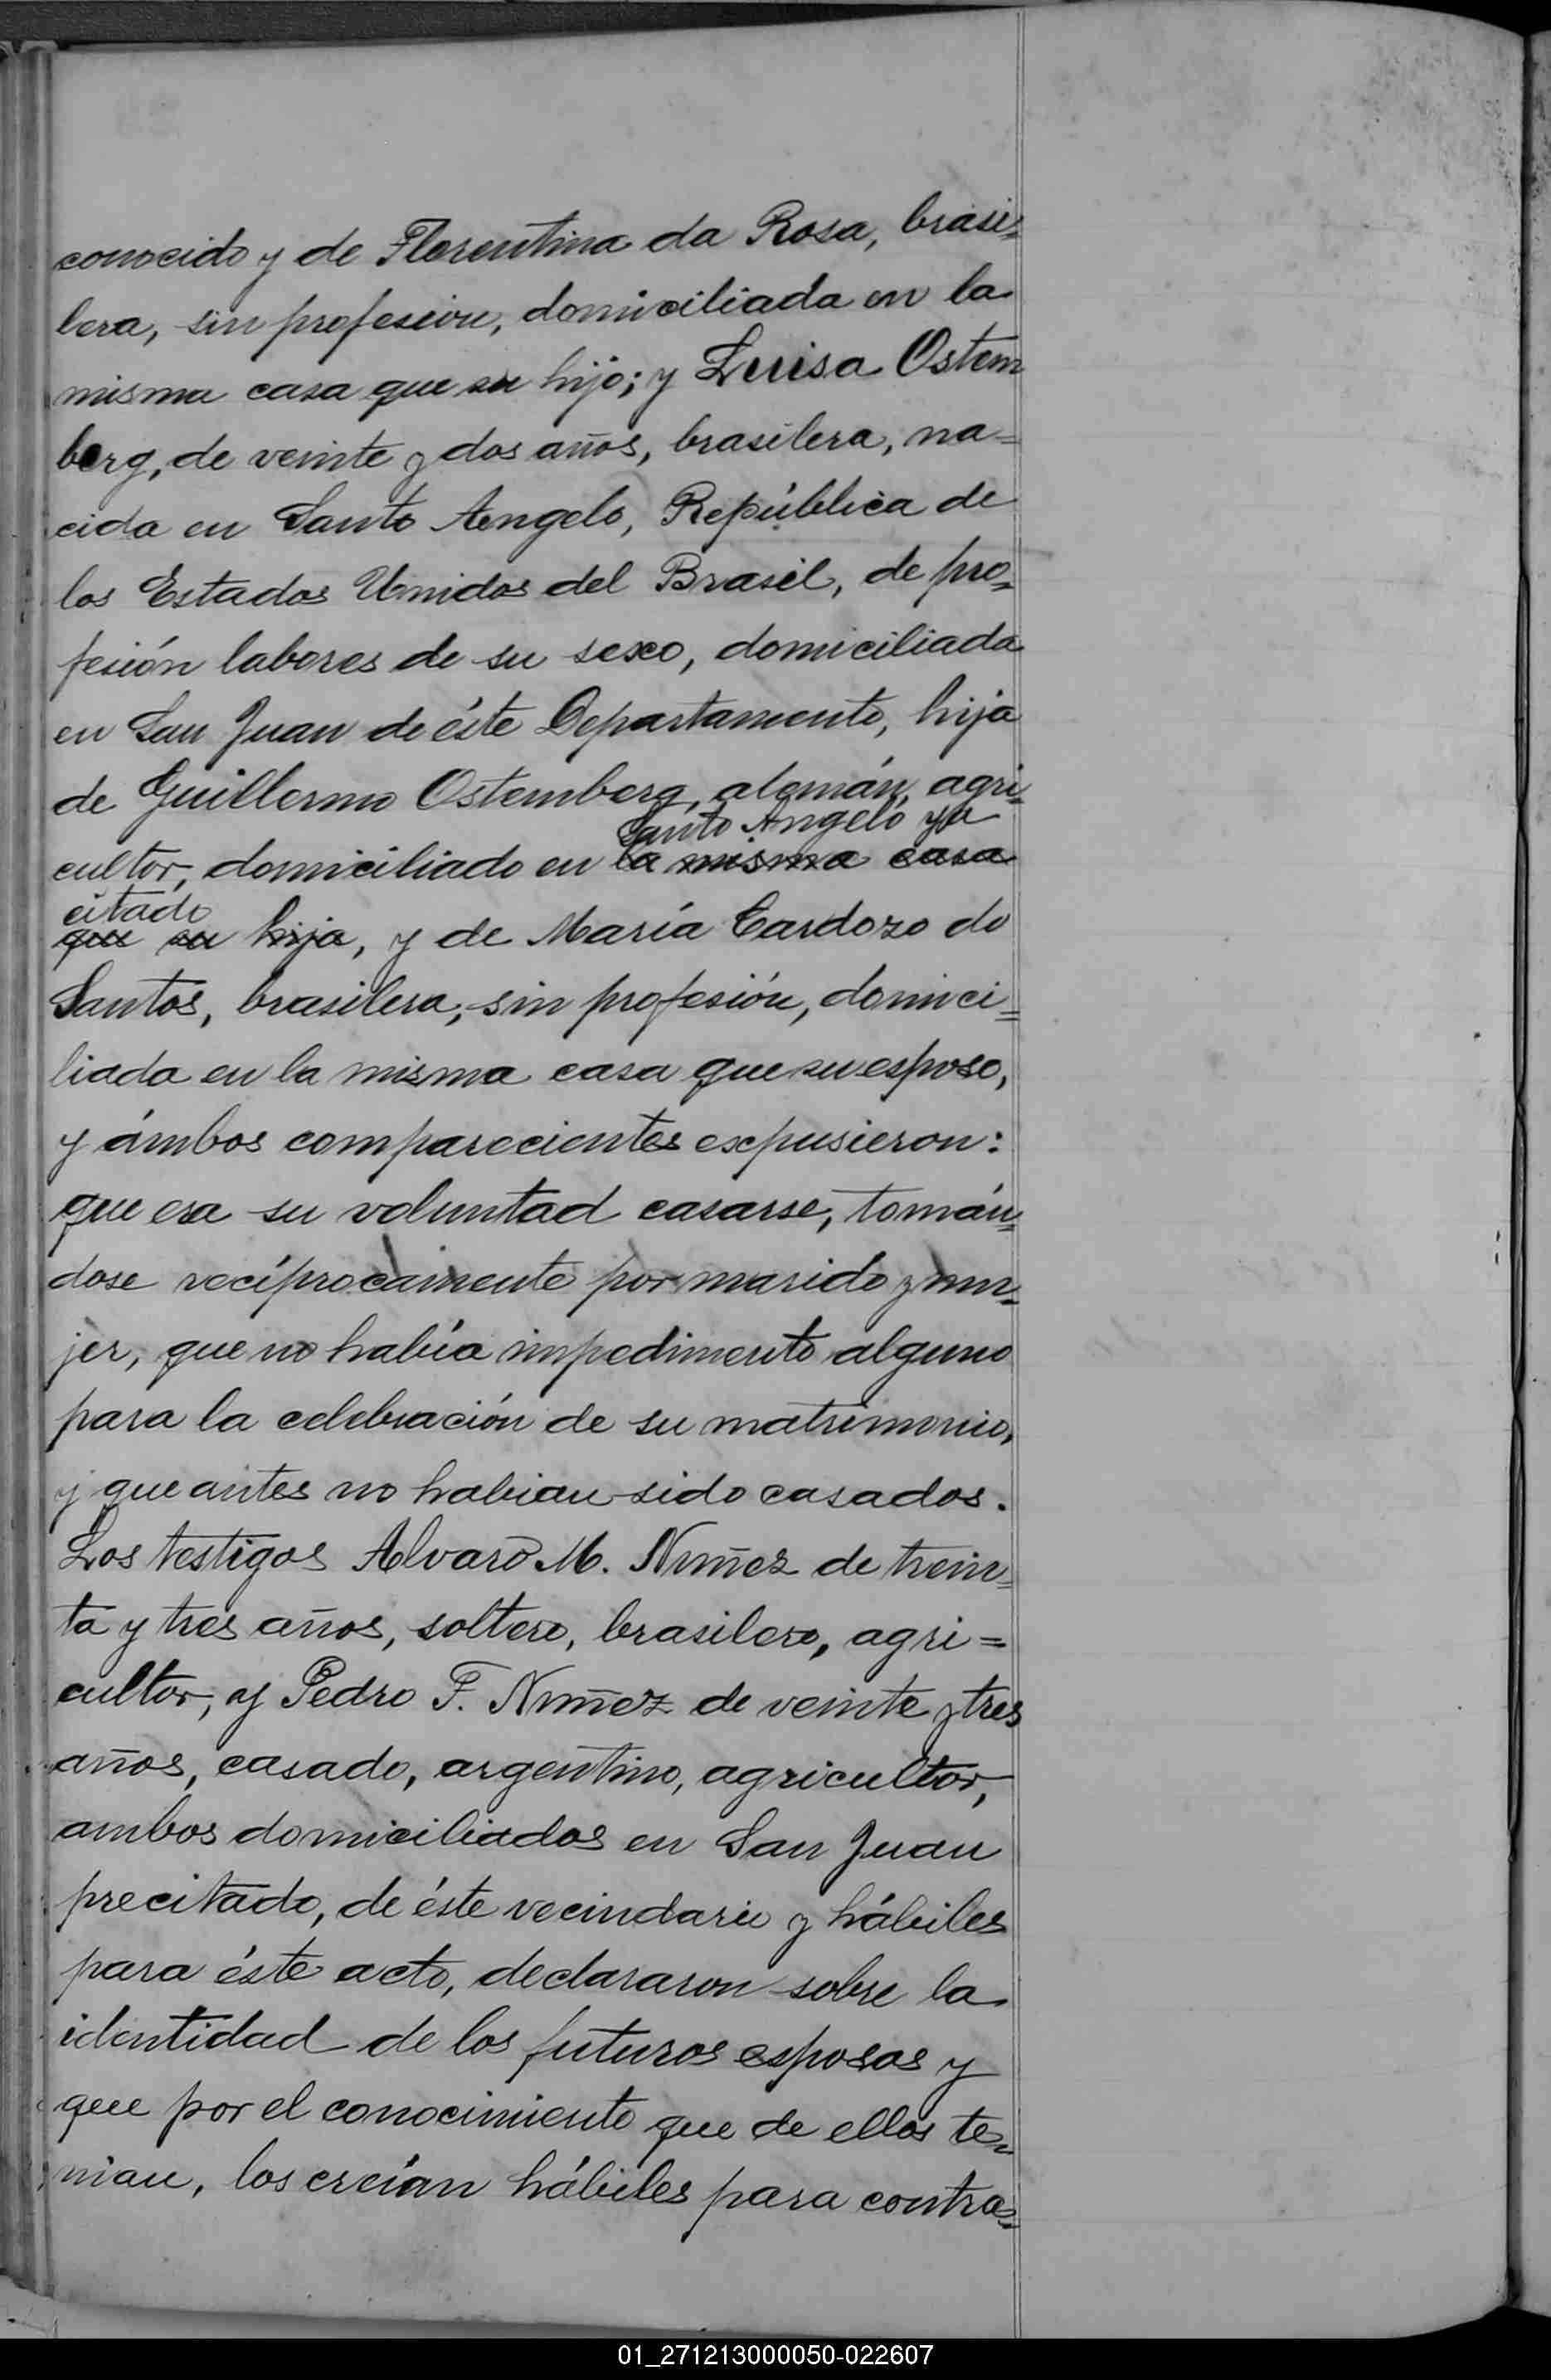 conocido y de Florentina da Rosa, brasi=
lera, sin profesión, domiciliada en la
misma casa que su hijo; y Luisa Ostem
berg, de veinte y dos años, brasilera, na=
cida en Santo Angelo, República de
los Estados Unidos del Brasil, de pro=
fesión labores de su sexo, domiciliada
en San Juan de éste Departamento, hija
de Guillermo Ostemberg, alemán, agri=
Santo Angelo ya
cultor, domiciliado en la misma casa
citado
que su hija, y de María Cardozo do
Santos, brasilera, sin profesión, domici=
liada en la misma casa que su esposo,
y ámbos comparecientes expusieron:
que era su voluntad casarse, tomán=
dose recíprocamente por marido y mu=
jer, que no había impedimento alguno
para la celebración de su matrimonio,
y que antes no habian sido casados.
Los testigos Alvaro M. Nuñez de trein=
ta y tres años, soltero, brasilero, agri=
cultor, y Pedro F. Nuñez de veinte y tres
años, casado, argentino, agricultor,
ambos domiciliados en San Juan
precitado, de éste vecindario y hábiles
para éste acto, declararon sobre la
identidad de los futuros esposos y
que por el conocimiento que de ellos te=
nian, los creían hábiles para contra=
01_271213000050-022607